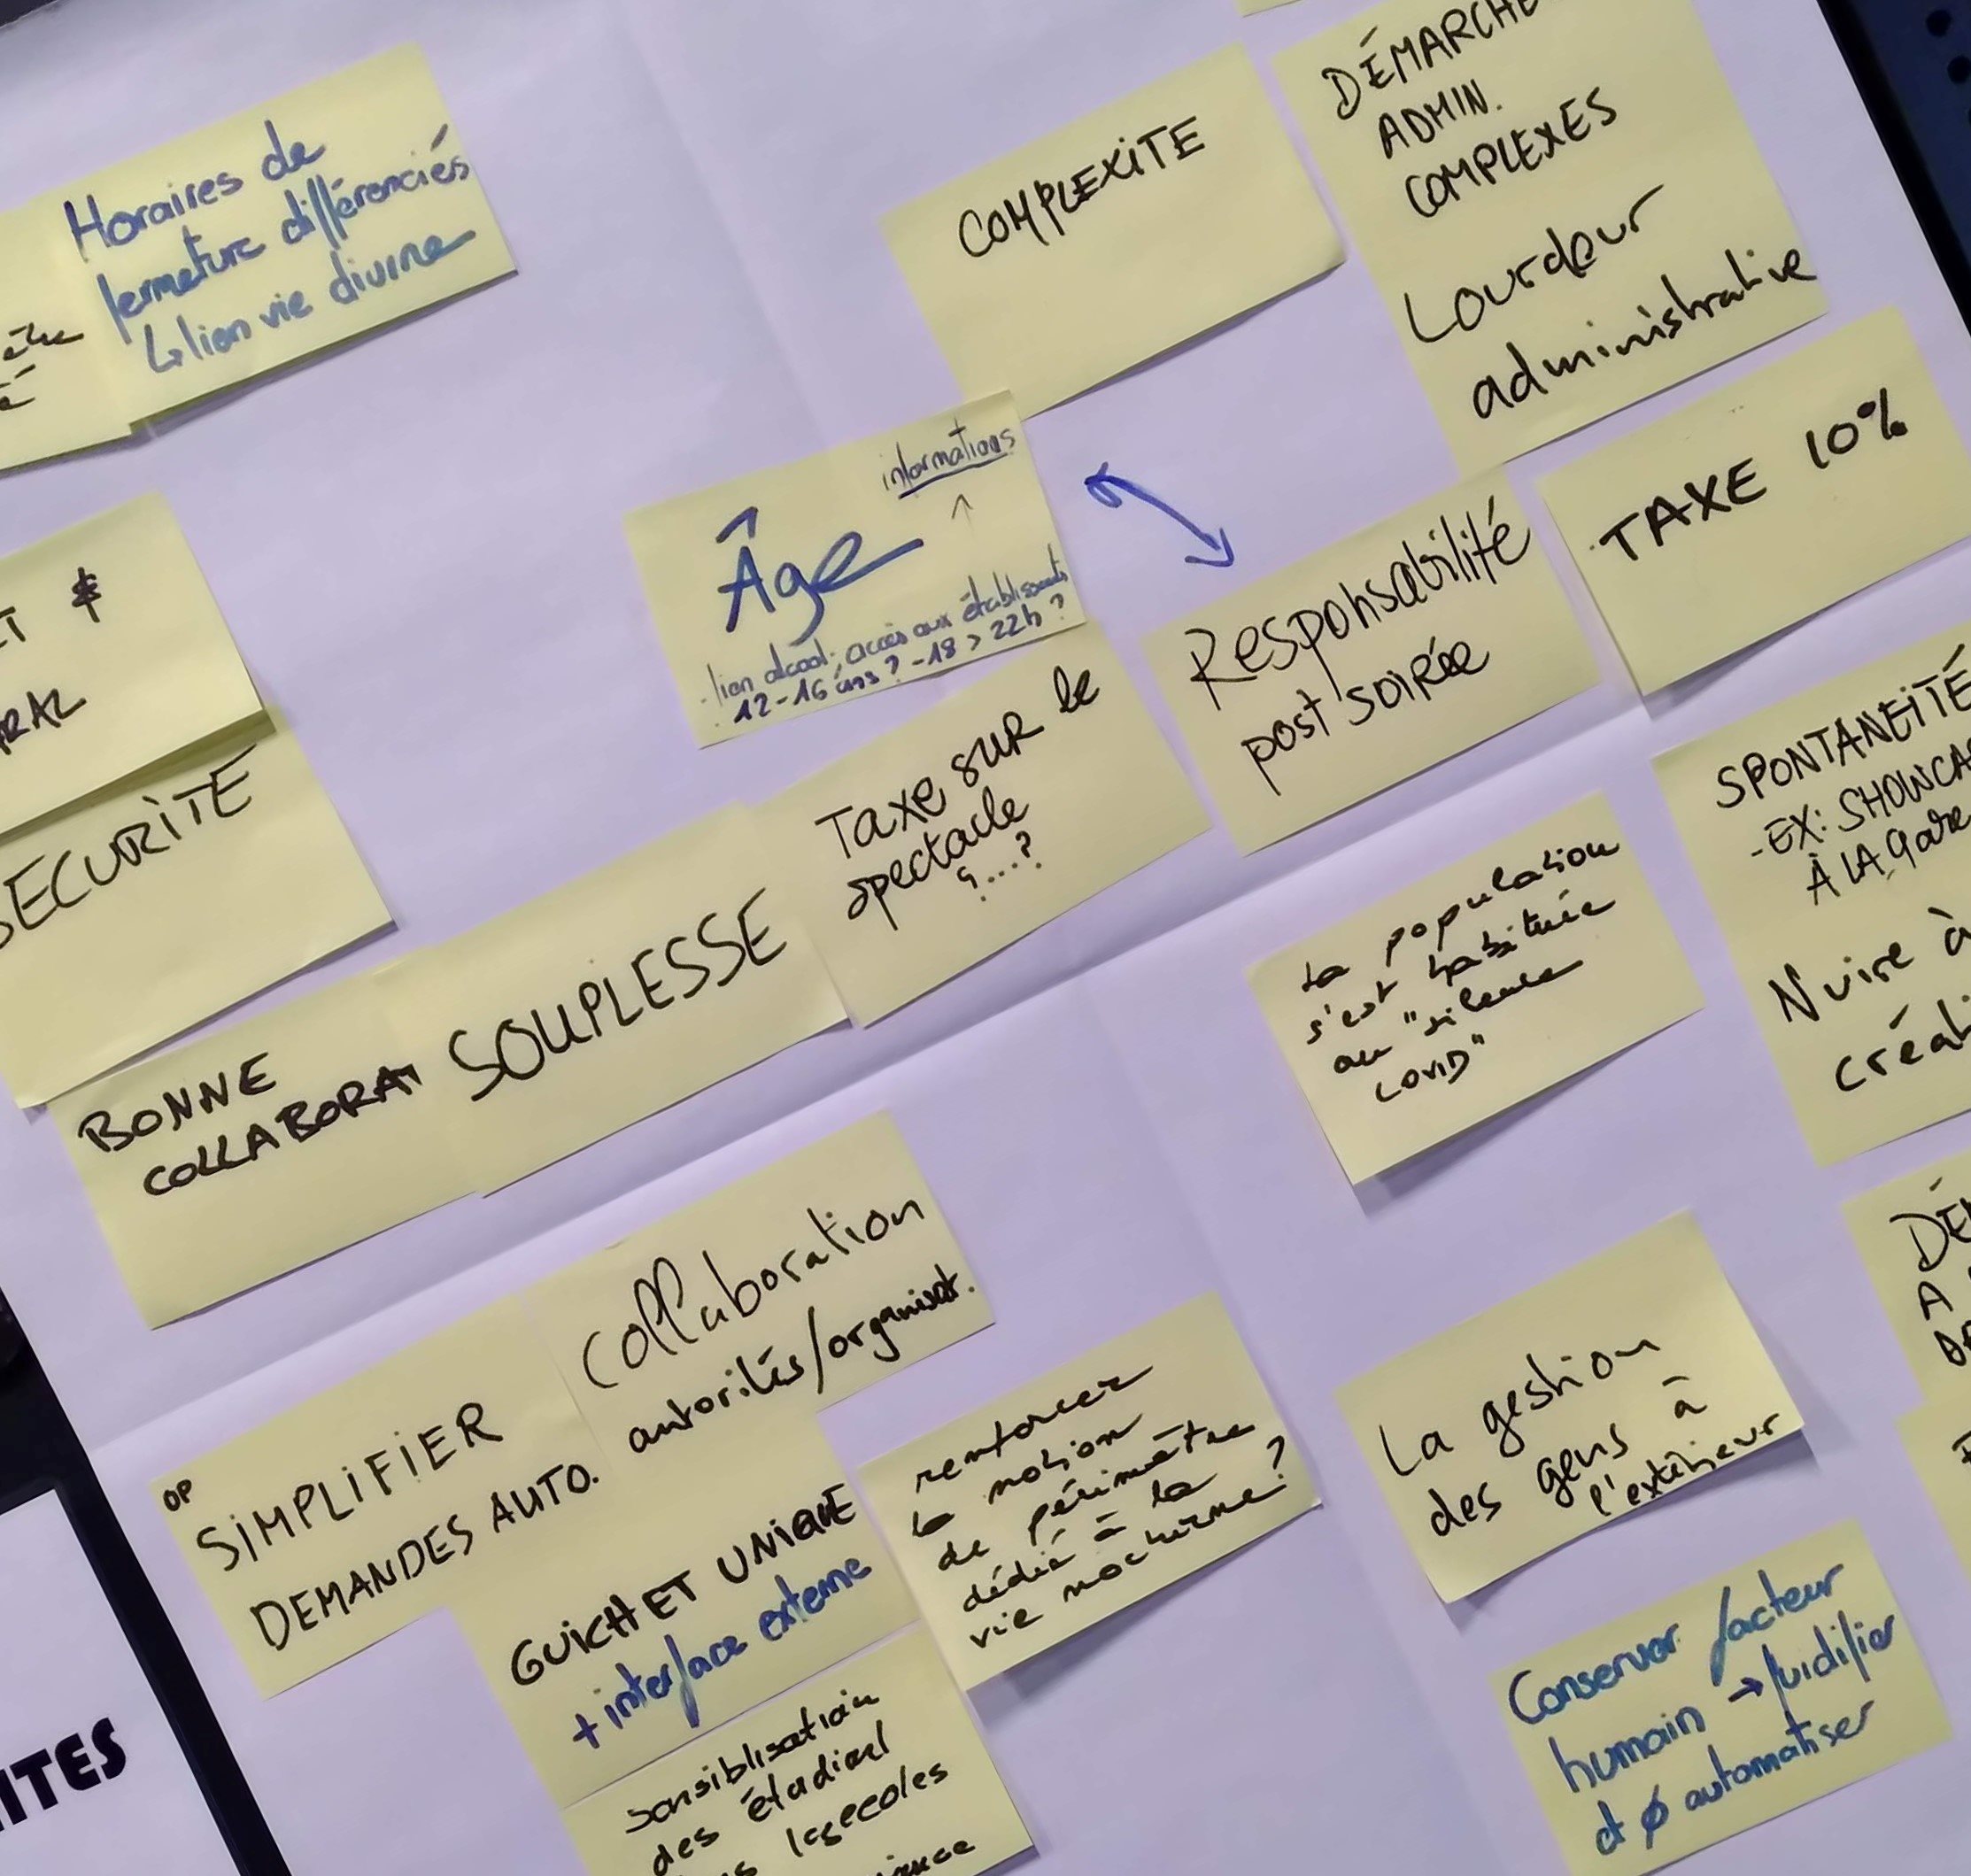 Horaires de
fermeture différenciés
↳ lien vie diurne
COMPLEXITE
DÉMARCHE
ADMIN.
COMPLEXES
Lourdeur
administrative
informations
↑
Âge
lien alcool; accès aux établissements
12-16 ans? -18 > 22h?
Responsabilité
post soirée
TAXE 10%
ET &
SECURITE
TAXE SUR le
spectacle
?....?
SPONTANEITÉ
-EX: SHOWCA
À LA gare
Nuire à
créati
la population
s'est habituée
au "silence
COVID"
BONNE
COLLABORAT
SOUPLESSE
Collaboration
autorités/organisat.
OP
SIMPLIFIER
DEMANDES AUTO.
GUICHET UNIQUE
+ interface externe
renforcer
la notion
de périmètre
dédié à la
vie nocturne?
La gestion
des gens à
l'extérieur
Conserver facteur
humain → fluidifier
et ø automatiser
sensiblisation
des étudiant
ecoles
ITES